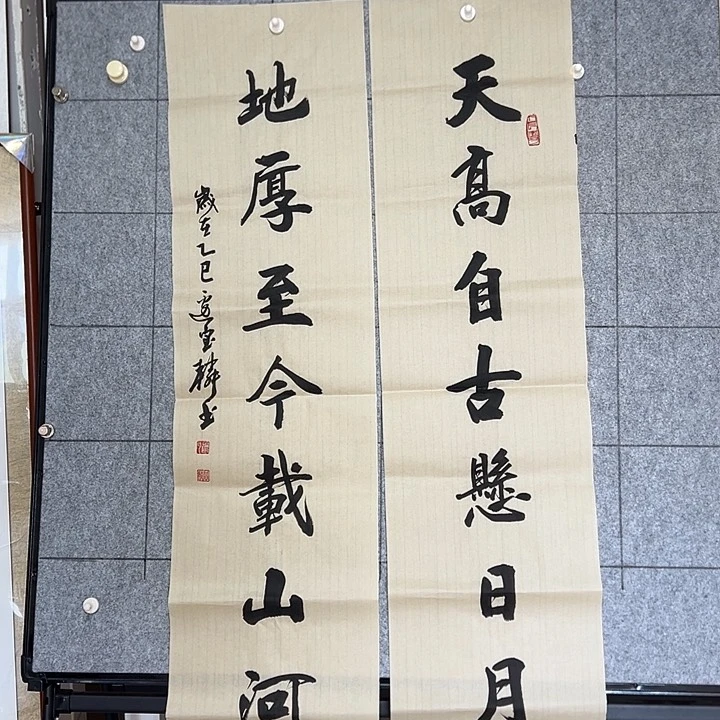 天高自古懸日月
地厚至今載山河
歲在乙巳
書